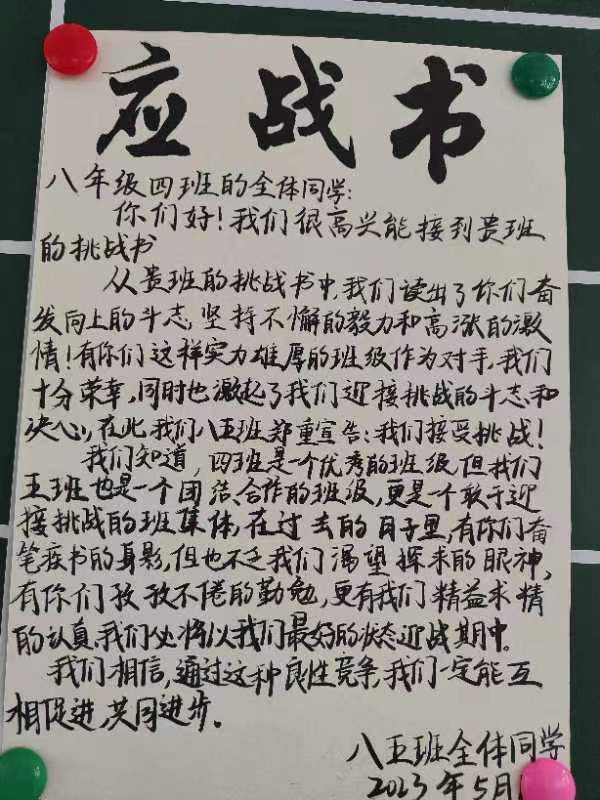 应战书
八年级四班的全体同学：
你们好！我们很高兴能接到贵班
的挑战书
从贵班的挑战书中，我们读出了你们奋
发向上的斗志，坚持不懈的毅力和高涨的激
情！有你们这样实力雄厚的班级作为对手，我们
十分荣幸，同时也激起了我们迎接挑战的斗志和
决心，在此，我们八五班郑重宣告：我们接受挑战！
我们知道，四班是一个优秀的班级，但我们
五班也是一个团结、合作的班级，更是一个敢于迎
接挑战的班集体，在过去的日子里，有你们奋
笔疾书的身影，但也不乏我们渴望探求的眼神，
有你们孜孜不倦的勤勉，更有我们精益求情
的认真，我们必将以我们最好的状态迎战期中。
我们相信，通过这种良性竞争，我们一定能互
相促进，共同进步。
八五班全体同学
2023年5月